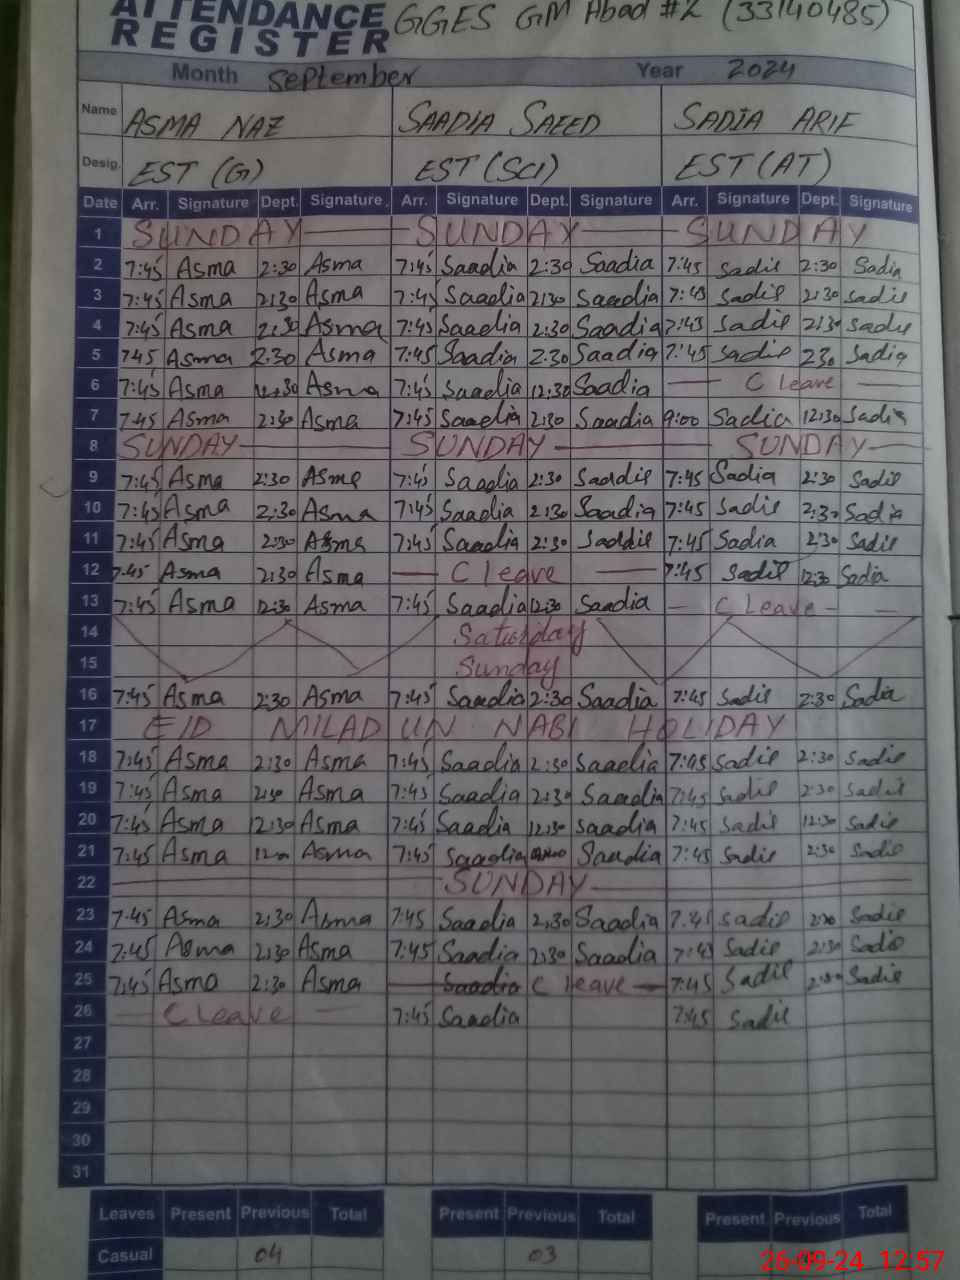 ATTENDANCE REGISTER GGES GM Abad #2 (33140485)
Month September Year 2024
Name ASMA NAZ SAADIA SAEED SADIA ARIF
Desig. EST (G) EST (SCI) EST (AT)
Date Arr. Signature Dept. Signature Arr. Signature Dept. Signature Arr. Signature Dept. Signature
1 SUNDAY SUNDAY SUNDAY
2 7:45 Asma 2:30 Asma 7:45 Saadia 2:30 Saadia 7:45 Sadia 2:30 Sadia
3 7:45 Asma 2:30 Asma 7:45 Saadia 2:30 Saadia 7:45 Sadia 2:30 Sadia
4 7:45 Asma 2:30 Asma 7:45 Saadia 2:30 Saadia 7:45 Sadia 2:30 Sadia
5 745 Asma 2:30 Asma 7:45 Saadia 2:30 Saadia 7:45 Sadia 230 Sadia
6 7:45 Asma Asma 7:45 Saadia 12:30 Saadia C leave
7 7:45 Asma 2:30 Asma 7:45 Saadia 2:30 Saadia 9:00 Sadia 12:30 Sadia
8 SUNDAY SUNDAY SUNDAY
9 7:45 Asma 2:30 Asma 7:45 Saadia 2:30 Saadia 7:45 Sadia 2:30 Sadia
10 7:45 Asma 2:30 Asma 7:45 Saadia 2:30 Saadia 7:45 Sadia 2:30 Sadia
11 7:45 Asma 2:30 Asma 7:45 Saadia 2:30 Saadia 7:45 Sadia 2:30 Sadia
12 7:45 Asma 2:30 Asma C leave 7:45 Sadia 12:30 Sadia
13 7:45 Asma 12:30 Asma 7:45 Saadia 12:30 Saadia C Leave
14 Saturday
15 Sunday
16 7:45 Asma 2:30 Asma 7:45 Saadia 2:30 Saadia 7:45 Sadia 2:30 Sadia
17 EID MILAD UN NABI HOLIDAY
18 7:45 Asma 2:30 Asma 7:45 Saadia 2:30 Saadia 7:45 Sadia 2:30 Sadia
19 7:45 Asma 2:30 Asma 7:45 Saadia 2:30 Saadia 7:45 Sadia 2:30 Sadia
20 7:45 Asma 12:30 Asma 7:45 Saadia 12:30 Saadia 7:45 Sadia 12:30 Sadia
21 7:45 Asma Asma 7:45 Saadia Saadia 7:45 Sadia 2:30 Sadia
22 SUNDAY
23 7:45 Asma 2:30 Asma 7:45 Saadia 2:30 Saadia 7:45 Sadia Sadia
24 7:45 Asma 2:30 Asma 7:45 Saadia 2:30 Saadia 7:45 Sadia 2:30 Sadia
25 7:45 Asma 2:30 Asma Saadia C leave 7:45 Sadia 2:30 Sadia
26 C leave 7:45 Saadia 7:45 Sadia
27
28
29
30
31
Leaves Present Previous Total Present Previous Total Present Previous Total
Casual 04 03
26-09-24 12:57